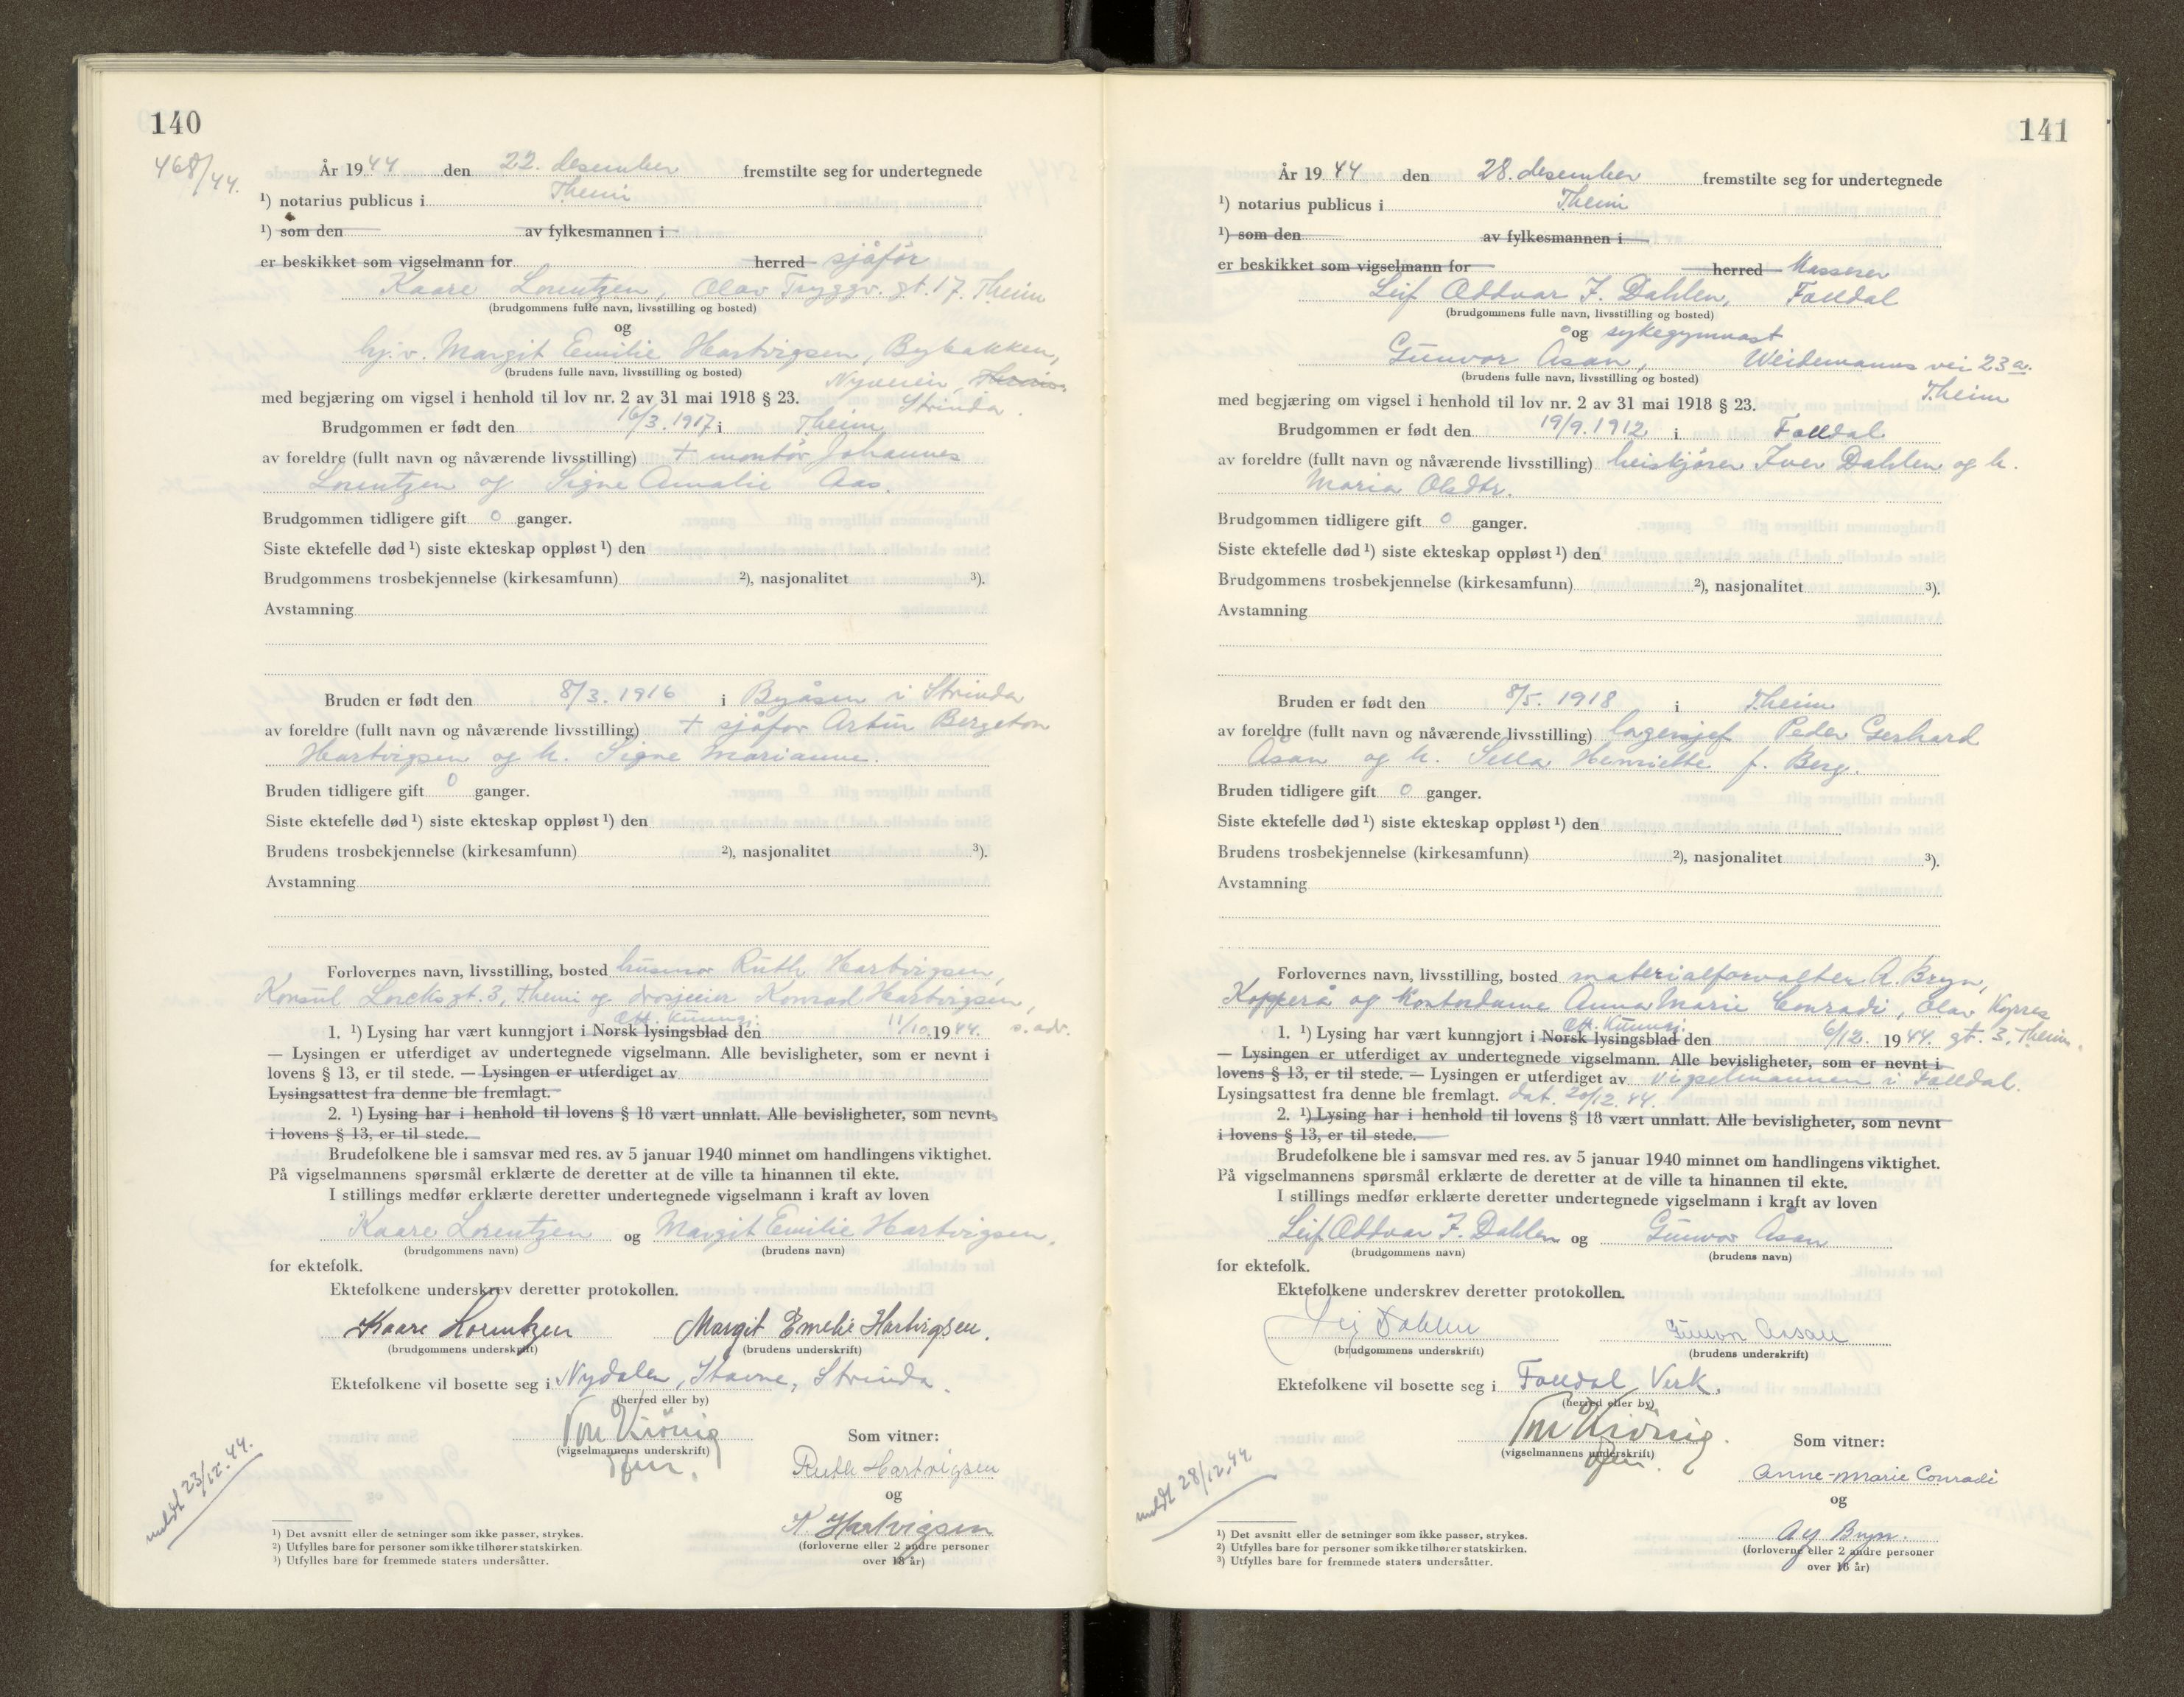 140
468/44.
År 1944 den 22. desember fremstilte seg for undertegnede
¹) notarius publicus i Theim
¹) som den av fylkesmannen i
er beskikket som vigselmann for herred sjåfør
Kaare Lorentzen, Olav Tryggv. gt. 17. Theim
(brudgommens fulle navn, livsstilling og bosted)
og
hj.v. Margit Emilie Hartvigsen, Bybakken,
(brudens fulle navn, livsstilling og bosted)
Nyveien, Theim
med begjæring om vigsel i henhold til lov nr. 2 av 31 mai 1918 § 23. Strinda.
Brudgommen er født den 16/3. 1917 i Theim
av foreldre (fullt navn og nåværende livsstilling) + montør Johannes
Lorentzen og Signe Amalie Aas.
Brudgommen tidligere gift 0 ganger.
Siste ektefelle død ¹) siste ekteskap oppløst ¹) den
Brudgommens trosbekjennelse (kirkesamfunn) ²), nasjonalitet ³).
Avstamning
Bruden er født den 8/3. 1916 i Byåsen i Strinda
av foreldre (fullt navn og nåværende livsstilling) + sjåfør Artur Bergeton
Hartvigsen og h. Signe Marianne.
Bruden tidligere gift 0 ganger.
Siste ektefelle død ¹) siste ekteskap oppløst ¹) den
Brudens trosbekjennelse (kirkesamfunn) ²), nasjonalitet ³).
Avstamning
Forlovernes navn, livsstilling, bosted husmor Ruth Hartvigsen,
Konsul Lorcks gt. 3, Theim og drosjeeier Konrad Hartvigsen,
Off. Kunngj.
1. ¹) Lysing har vært kunngjort i Norsk lysingsblad den 11/10. 1944. s. adr.
— Lysingen er utferdiget av undertegnede vigselmann. Alle bevisligheter, som er nevnt i
lovens § 13, er til stede. — Lysingen er utferdiget av
Lysingsattest fra denne ble fremlagt.
2. ¹) Lysing har i henhold til lovens § 18 vært unnlatt. Alle bevisligheter, som nevnt
i lovens § 13, er til stede.
Brudefolkene ble i samsvar med res. av 5 januar 1940 minnet om handlingens viktighet.
På vigselmannens spørsmål erklærte de deretter at de ville ta hinannen til ekte.
I stillings medfør erklærte deretter undertegnede vigselmann i kraft av loven
Kaare Lorentzen og Margit Emilie Hartvigsen.
(brudgommens navn) (brudens navn)
for ektefolk.
Ektefolkene underskrev deretter protokollen.
Kaare Lorentzen Margit Emelie Hartvigsen.
(brudgommens underskrift) (brudens underskrift)
Ektefolkene vil bosette seg i Nydalen, Stavne, Strinda.
(herred eller by)
(vigselmannens underskrift)
Som vitner:
Ruth Hartvigsen
og
K. Hartvigsen
(forloverne eller 2 andre personer
over 18 år)
meldt 23/12. 44.
¹) Det avsnitt eller de setninger som ikke passer, strykes.
²) Utfylles bare for personer som ikke tilhører statskirken.
³) Utfylles bare for fremmede staters undersåtter.
141
År 1944 den 28. desember fremstilte seg for undertegnede
¹) notarius publicus i Theim
¹) som den av fylkesmannen i
er beskikket som vigselmann for herred Massører
Leif Oddvar I. Dahlen, Folldal
(brudgommens fulle navn, livsstilling og bosted)
og sykegymnast
Gunvor Åsan, Weidemanns vei 23 a.
(brudens fulle navn, livsstilling og bosted)
Theim
med begjæring om vigsel i henhold til lov nr. 2 av 31 mai 1918 § 23.
Brudgommen er født den 19/9. 1912 i Folldal
av foreldre (fullt navn og nåværende livsstilling) heiskjører Iver Dahlen og h.
Maria Olsdtr.
Brudgommen tidligere gift 0 ganger.
Siste ektefelle død ¹) siste ekteskap oppløst ¹) den
Brudgommens trosbekjennelse (kirkesamfunn) ²), nasjonalitet ³).
Avstamning
Bruden er født den 8/5. 1918 i Theim
av foreldre (fullt navn og nåværende livsstilling) lagersjef Peder Gerhard
Åsan og h. Sella Henriette f. Berg.
Bruden tidligere gift 0 ganger.
Siste ektefelle død ¹) siste ekteskap oppløst ¹) den
Brudens trosbekjennelse (kirkesamfunn) ²), nasjonalitet ³).
Avstamning
Forlovernes navn, livsstilling, bosted materialforvalter A. Bryn,
Kopperå og kontordame Anna Marie Conradi, Olav Kyrres
Off. Kunngj.
1. ¹) Lysing har vært kunngjort i Norsk lysingsblad den 6/12. 1944. gt. 3, Theim.
— Lysingen er utferdiget av undertegnede vigselmann. Alle bevisligheter, som er nevnt i
lovens § 13, er til stede. — Lysingen er utferdiget av vigselmannen i Folldal.
Lysingsattest fra denne ble fremlagt. dat. 20/12. 44.
2. ¹) Lysing har i henhold til lovens § 18 vært unnlatt. Alle bevisligheter, som nevnt
i lovens § 13, er til stede.
Brudefolkene ble i samsvar med res. av 5 januar 1940 minnet om handlingens viktighet.
På vigselmannens spørsmål erklærte de deretter at de ville ta hinannen til ekte.
I stillings medfør erklærte deretter undertegnede vigselmann i kraft av loven
Leif Oddvar I. Dahlen og Gunvor Åsan
(brudgommens navn) (brudens navn)
for ektefolk.
Ektefolkene underskrev deretter protokollen.
Leif Dahlen Gunvor Aasan
(brudgommens underskrift) (brudens underskrift)
Ektefolkene vil bosette seg i Folldal Verk.
(herred eller by)
(vigselmannens underskrift)
Som vitner:
Anne-Marie Conradi
og
Bryn.
(forloverne eller 2 andre personer
over 18 år)
meldt 28/12. 44
¹) Det avsnitt eller de setninger som ikke passer, strykes.
²) Utfylles bare for personer som ikke tilhører statskirken.
³) Utfylles bare for fremmede staters undersåtter.